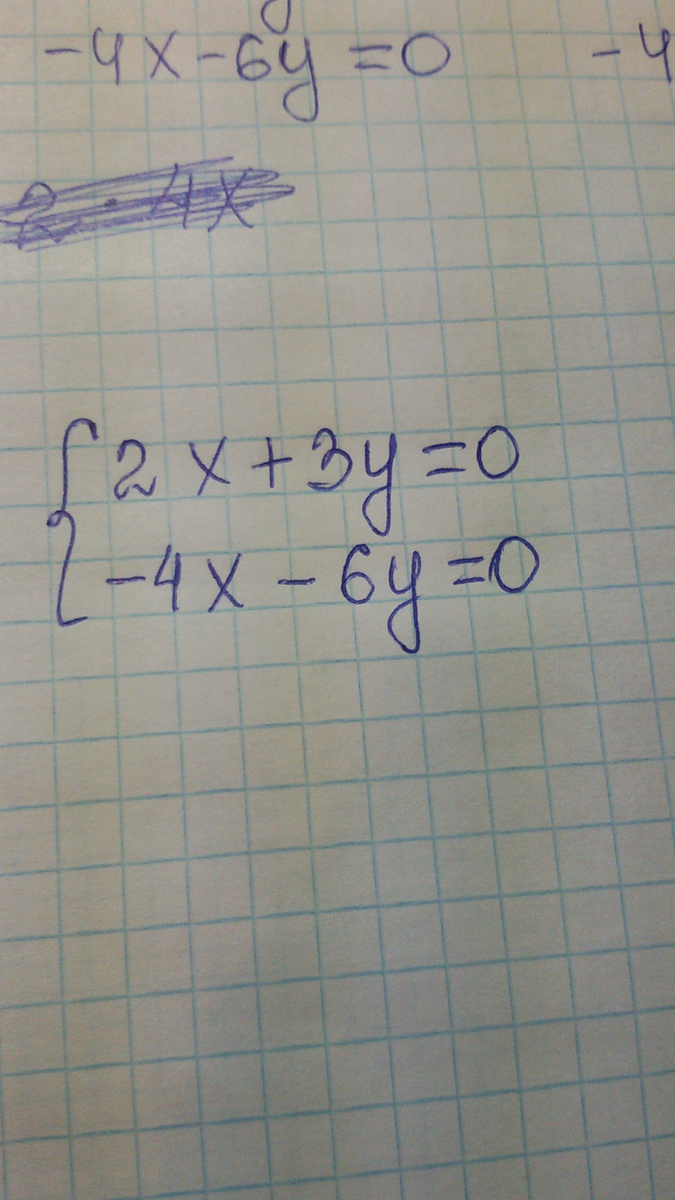 -4x-6y=0 -4
2·4x
{2x+3y=0
-4x-6y=0